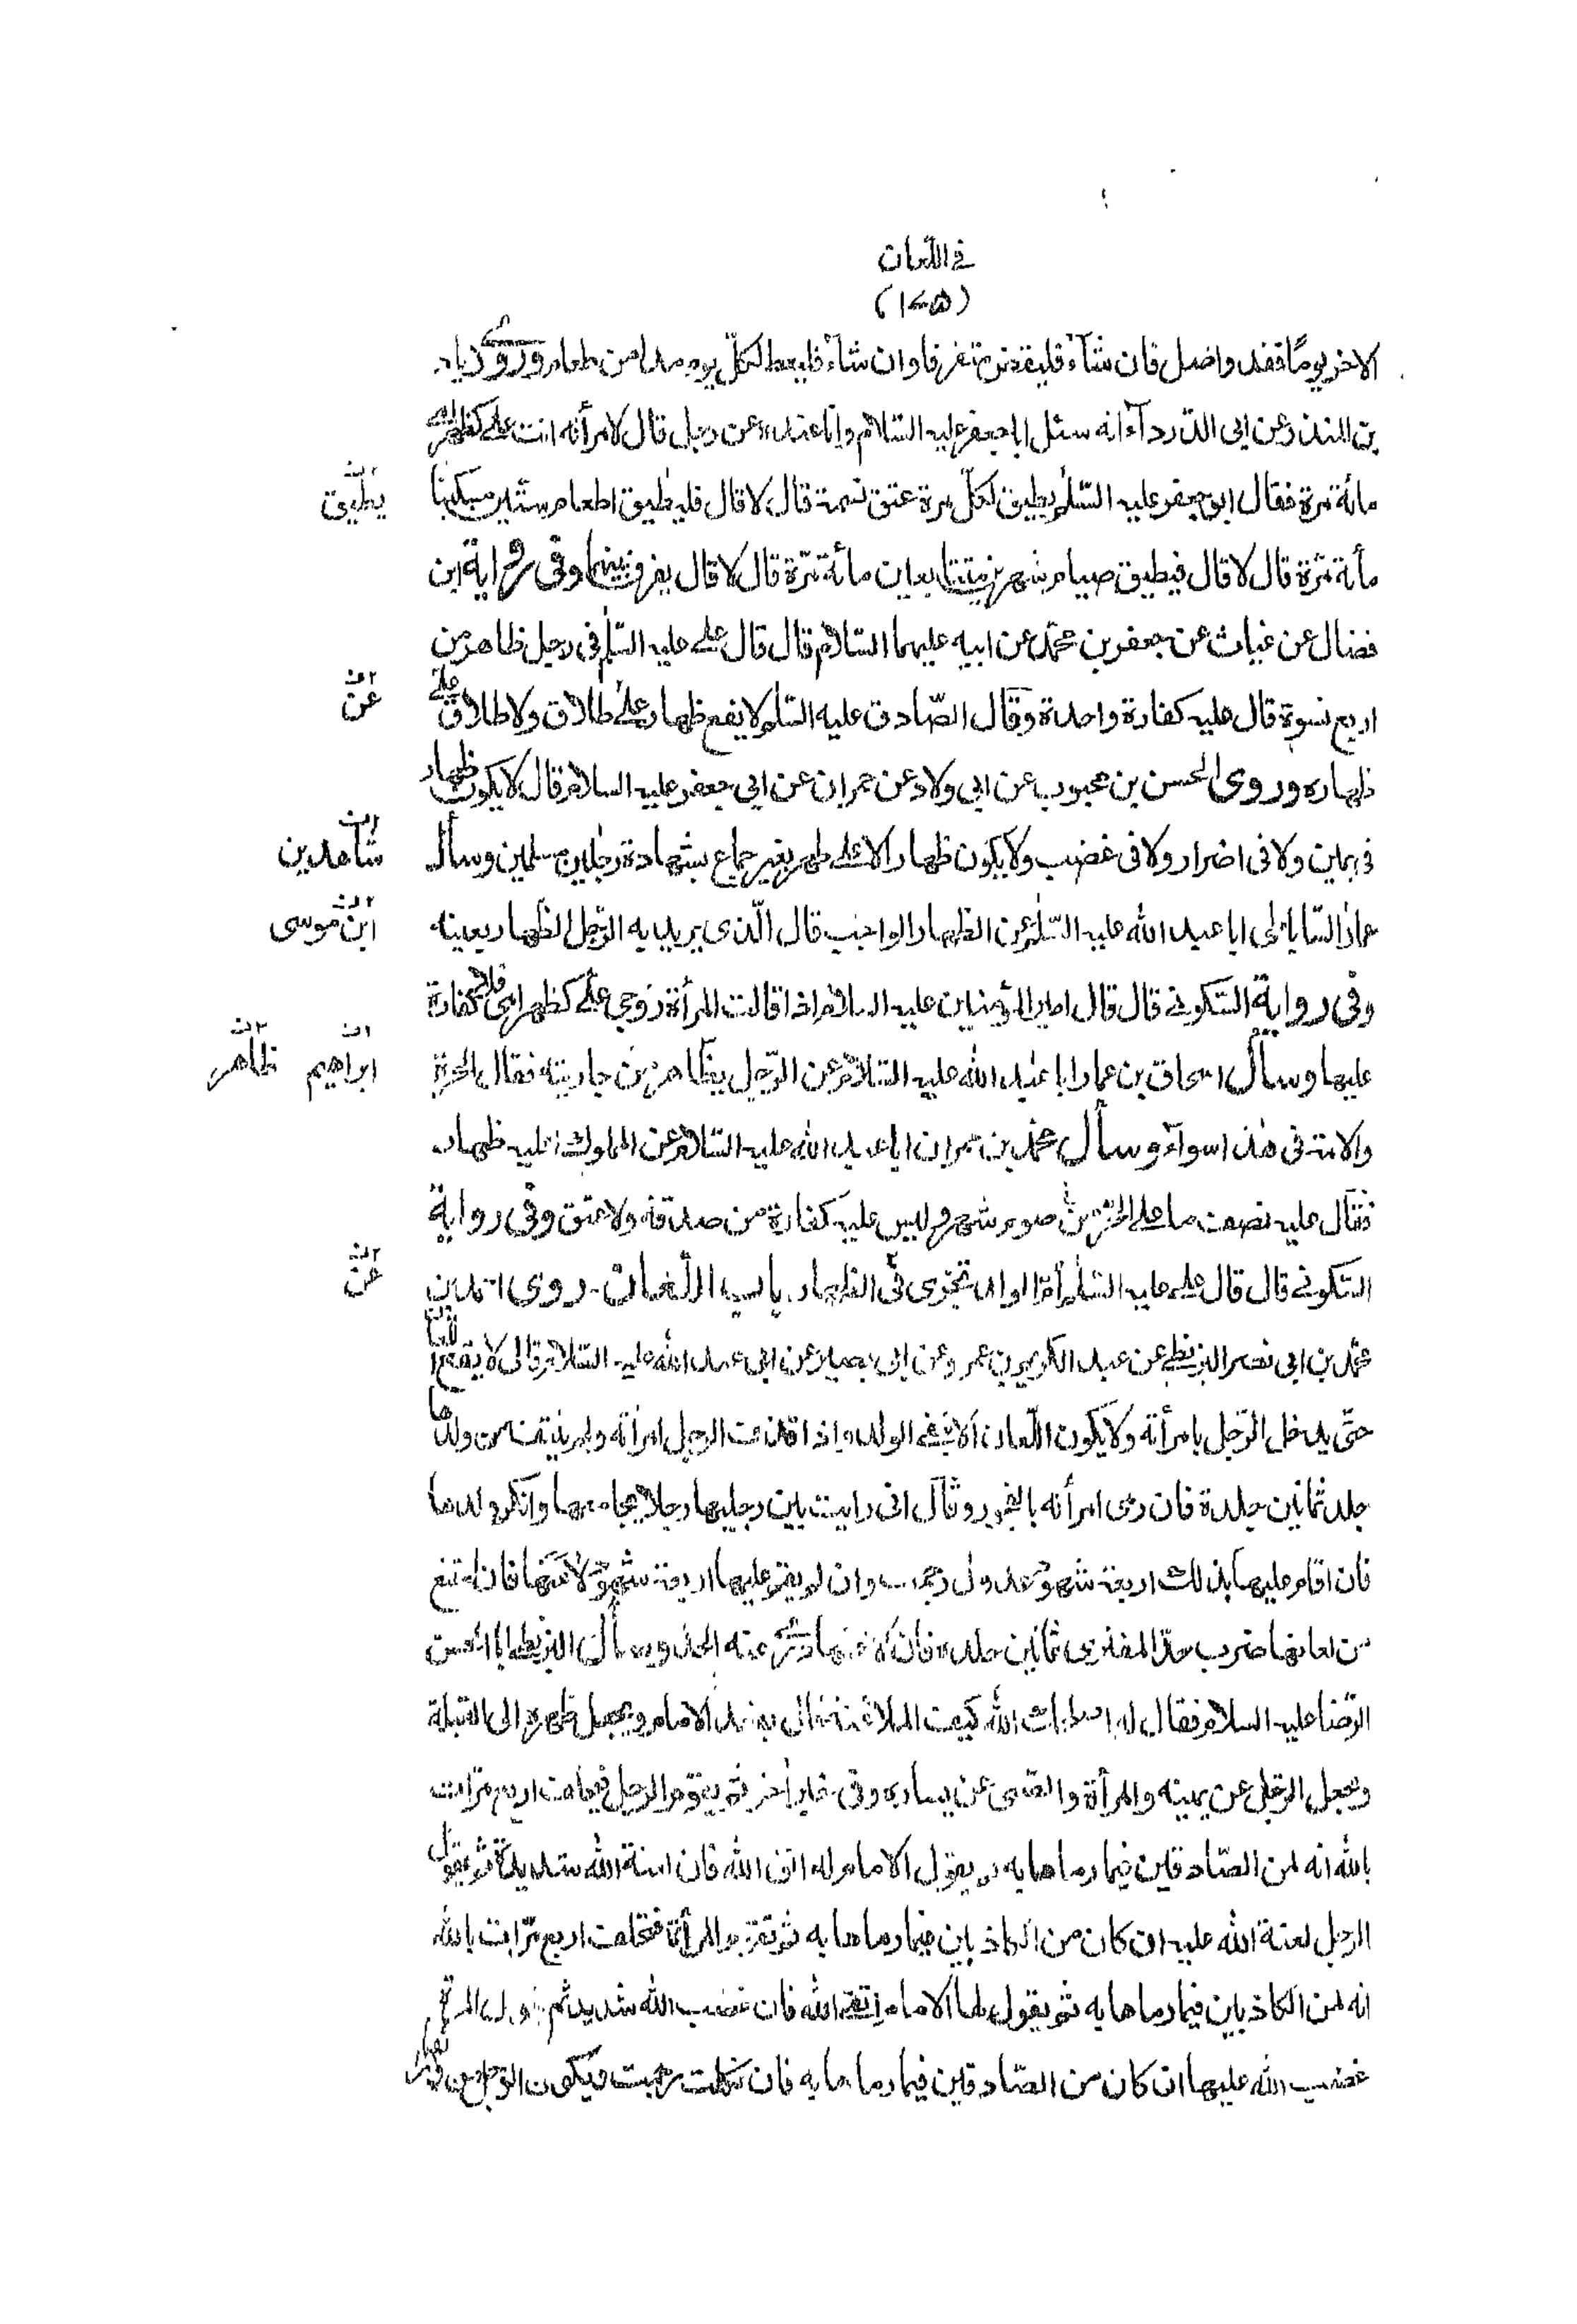 في اللّعان
الاخر يومًا فقد واصل فان شآء فليقض متفرقا وان شآء فليعط لكلّ يوم مدا من طعام وروى زياد
بن المنذر عن ابى الدّرداء انه سئل ابا جعفر عليه السّلام وانا عنده عن رجل قال لامرأته انت علىّ كظهر امّى
مائة مرة فقال ابو جعفر عليه السّلم يطيق لكلّ مرة عتق نسمة قال لا قال فليطيق اطعام ستّين مسكينًا
يطيق
مأة مرّة قال لا قال فيطيق صيام شهرين متتابعين مائة مرّة قال لا قال يفرق بينهما وفى رواية ابن
فضال عن غياث عن جعفر بن محمّد عن ابيه عليهما السّلام قال قال علي عليه السّلم فى رجل ظاهر من
عن
اربع نسوة قال عليه كفارة واحدة وقال الصّادق عليه السّلم لا يقع ظهار على طلاق ولا طلاق على
ظهار وروى الحسن بن محبوب عن ابى ولاد عن حمران عن ابى جعفر عليه السلام قال لا يكون ظهار
فى يمين ولا فى اضرار ولا فى غضب ولا يكون ظهار الا على طهر بغير جماع بشهادة رجلين مسلمين وسأل
شاهدين
عمار السّاباطى ابا عبد الله عليه السّلم عن الظهار الواجب قال الّذى يريد به الرّجل الظّهار بعينه
ابن موسى
وفى رواية السّكونى قال قال امير المؤمنين عليه السلام اذا قالت المرأة زوجي علىّ كظهر امّى فلا كفارة
عليها وسأل اسحاق بن عمار ابا عبد الله عليه السّلام عن الرّجل يظاهر من جاريته فقال الحرة
ابراهيم ظاهر
والامة فى هذا سواء وسأل محمّد بن حمران ابا عبد الله عليه السّلام عن المملوك اعليه ظهار
فقال عليه نصف ما على الحرّ من صوم شهر وليس عليه كفارة من صدقة ولا عتق وفى رواية
السّكونى قال قال علي عليه السّلم أمّ الولد تجزى فى الظهار باب اللّعان روى احمد بن
عن
محمّد بن ابى نصر البزنطى عن عبد الكريم بن عمرو عن ابى بصير عن ابى عبد الله عليه السّلام قال لا يقع اللّعان
حتّى يدخل الرّجل بامرأته ولا يكون اللّعان الا بنفى الولد واذا قذف الرجل امرأته ولم ينتف من ولدها
جلد ثمانين جلدة فان رمى امرأته بالفجور وقال انى رايت بين رجليها رجلا يجامعها وانكر ولدها
فان اقام عليها بذلك اربعة شهود عدول رجمت وان لم يقم عليها اربعة شهود لاعنها فان امتنع
من لعانها ضرب حدّ المفترى ثمانين جلدة فان لاعنها درئ عنه الحدّ وسأل البزنطى ابا الحسن
الرّضا عليه السلام فقال له اصلحك الله كيف الملاعنة فقال يقعد الامام ويجعل ظهره الى القبلة
ويجعل الرّجل عن يمينه والمرأة والصّبى عن يساره وفى خبر اخر ثم يقوم الرجل فيحلف اربع مرّات
بالله انه لمن الصّادقين فيما رماها به ثم يقول الامام له اتق الله فان لعنة الله شديدة ثم يقول
الرجل لعنة الله عليه ان كان من الكاذبين فيما رماها به ثم تقوم المرأة فتحلف اربع مرّات بالله
انه لمن الكاذبين فيما رماها به ثم يقول لها الامام اتقى الله فان غضب الله شديد ثم تقول المرأة
غضب الله عليها ان كان من الصّادقين فيما رماها به فان نكلت رجمت ويكون الرّجم من